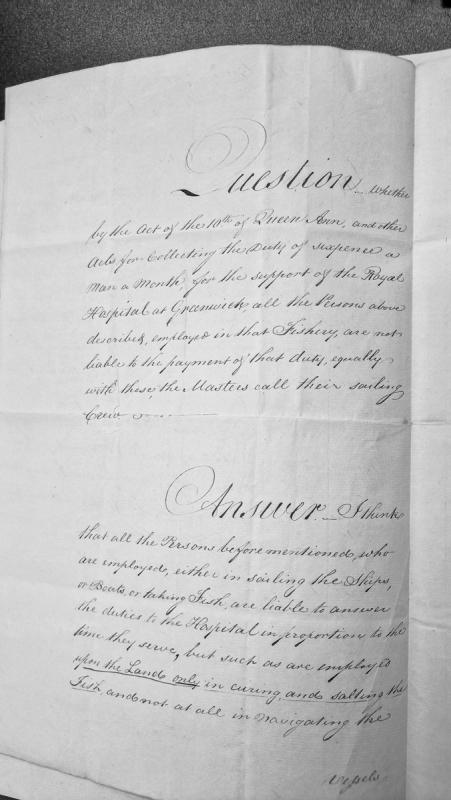 Question _ whether
by the Act of the 10th of Queen Ann, and other
Acts for Collecting the Duty of sixpence a
Man a Month for the support of the Royal
Hospital at Greenwich, all the Persons above
described, employed in that Fishery, are not
liable to the payment of that duty, equally
with those, the Masters call their sailing
Crew
Answer _ I think
that all the Persons before mentioned, who
are employed, either in sailing the Ships,
or Boats, or taking Fish, are liable to answer
the duties to the Hospital in proportion to the
time they serve, but such as are employed
upon the Land only in curing, and salting the
Fish, and not at all in navigating the
Vessels